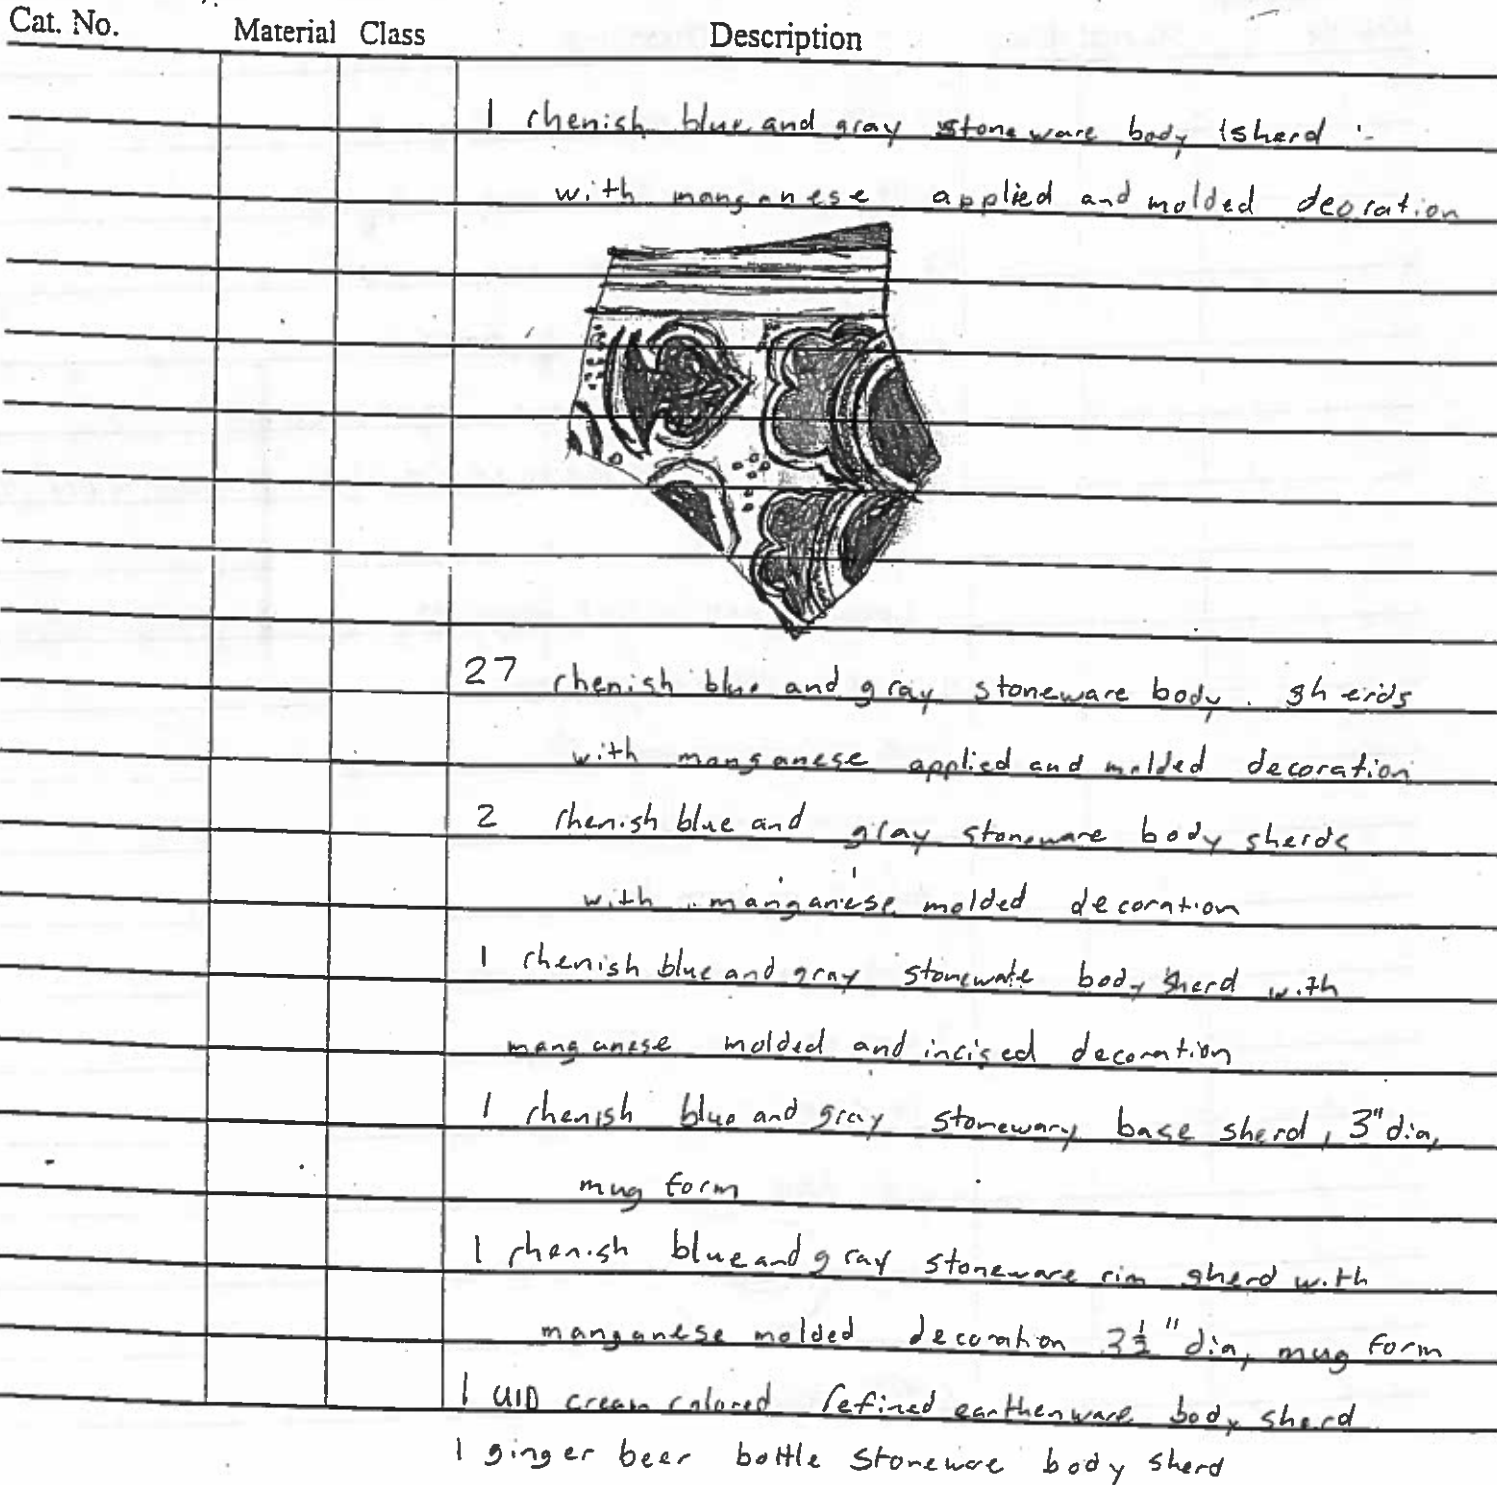 Cat. No. Material Class Description
1 rhenish blue and gray stoneware body sherd
with manganese applied and molded deoration
27 rhenish blue and gray stoneware body sherds
with manganese applied and molded decoration
2 rhenish blue and gray stoneware body sherds
with manganese molded decoration
1 rhenish blue and gray stoneware body sherd with
manganese molded and incised decoration
1 rhenish blue and gray stoneware base sherd, 3" dia,
mug form
1 rhenish blue and gray stoneware rim sherd with
manganese molded decoration 3½" dia, mug form
1 UID cream colored refined earthenware body sherd
1 ginger beer bottle stoneware body sherd